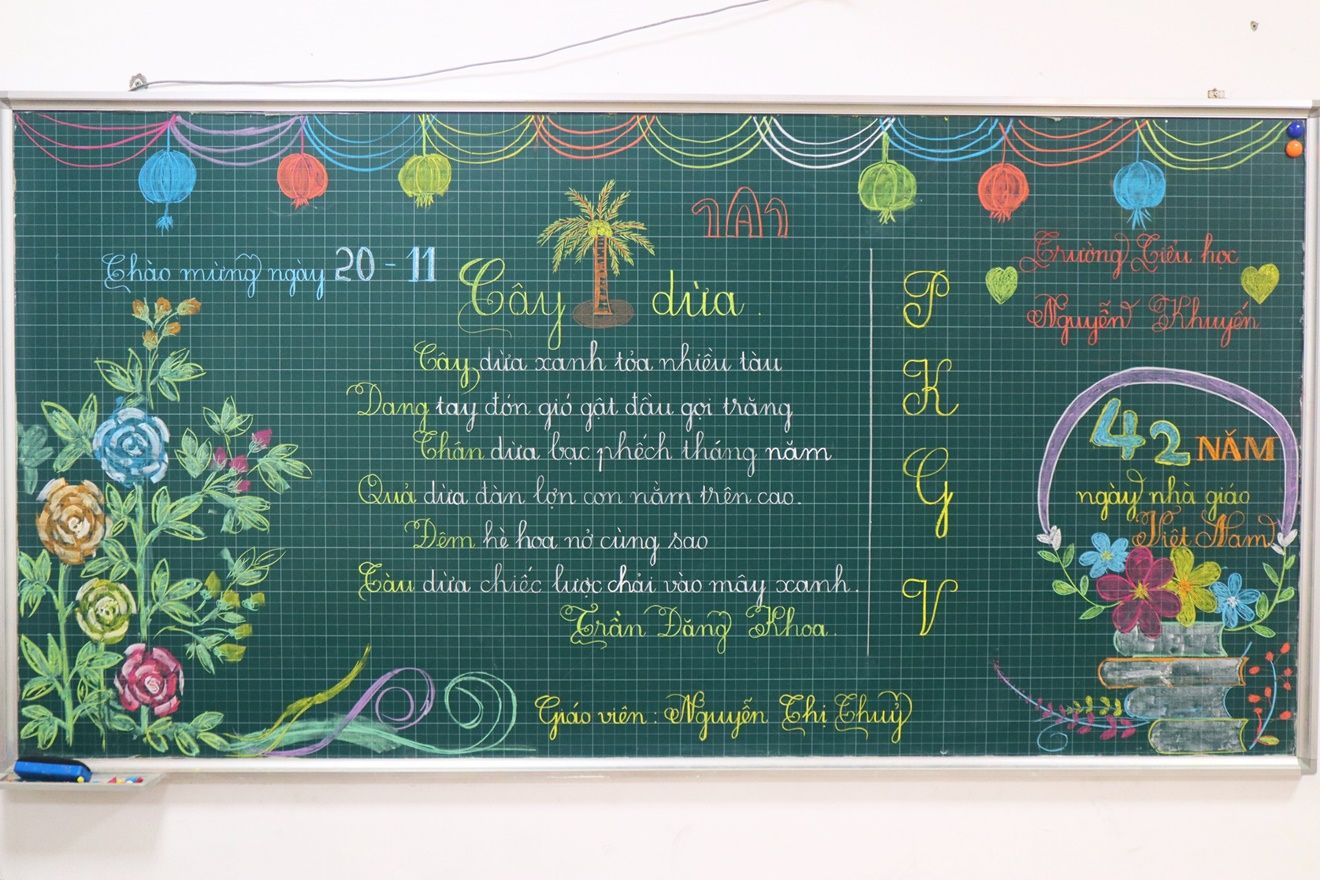 1A1
Chào mừng ngày 20 - 11
Cây dừa.
Cây dừa xanh tỏa nhiều tàu
Dang tay đón gió gật đầu gọi trăng
Thân dừa bạc phếch tháng năm
Quả dừa đàn lợn con nằm trên cao.
Đêm hè hoa nở cùng sao
Tàu dừa chiếc lược chải vào mây xanh.
Trần Đăng Khoa.
Giáo viên: Nguyễn Thị Thuỷ
P
K
G
V
Trường Tiểu học
Nguyễn Khuyến
42 NĂM
ngày nhà giáo
Việt Nam